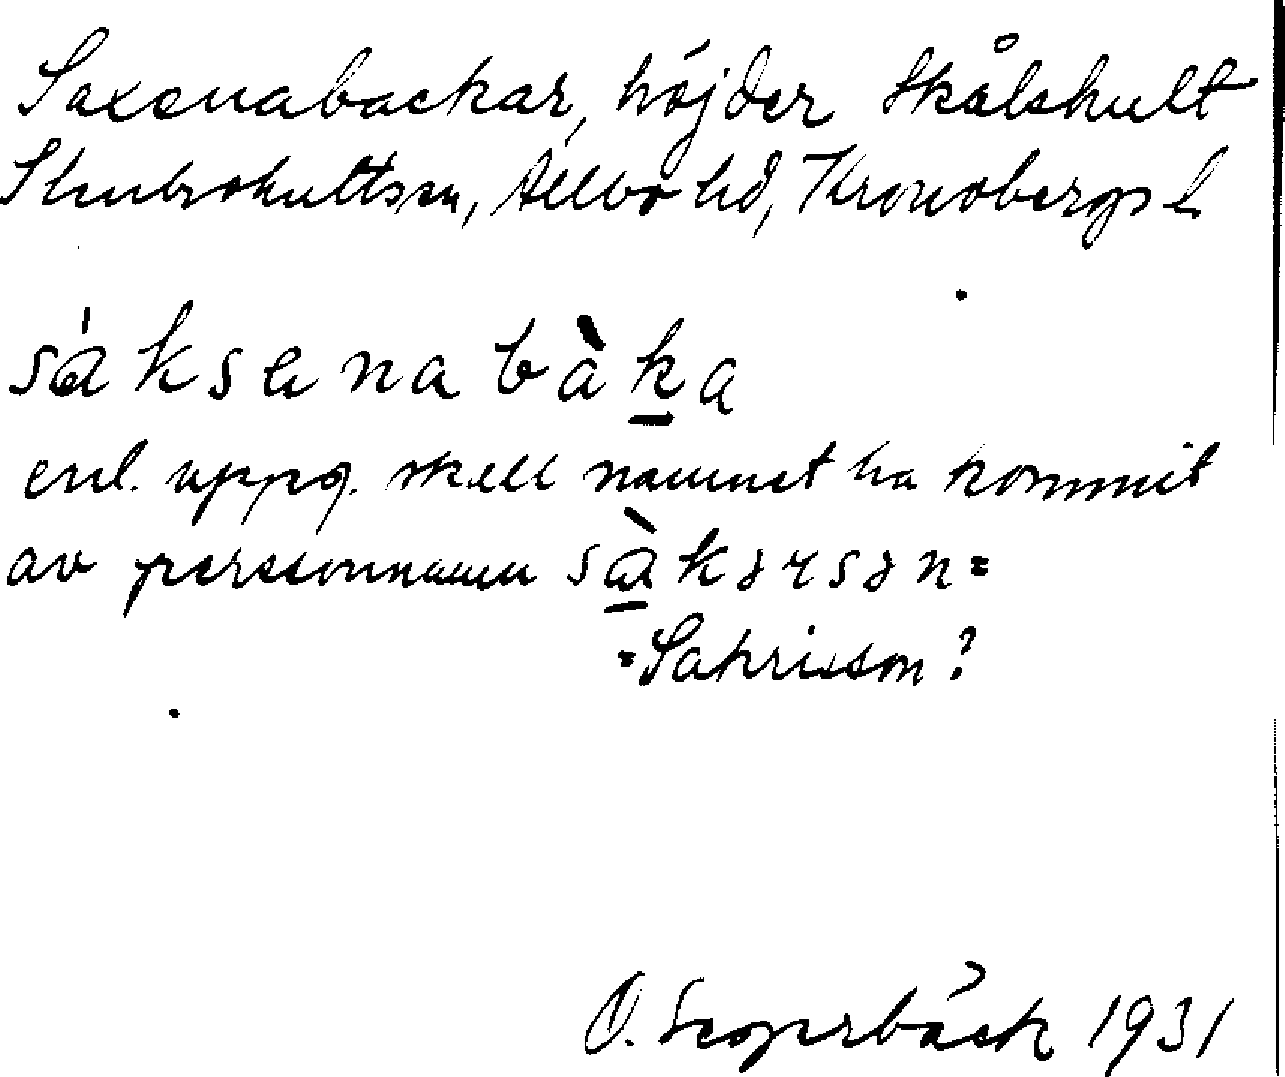 Saxenabackar, höjder Skålshult
Stenbrohultssn, Allbo hd, Kronobergs l.
sáksenabàka
enl. uppg. skall namnet ha kommit
av personnamn sàkərsən=
=Sakrisson?
O. Segerbäck 1931